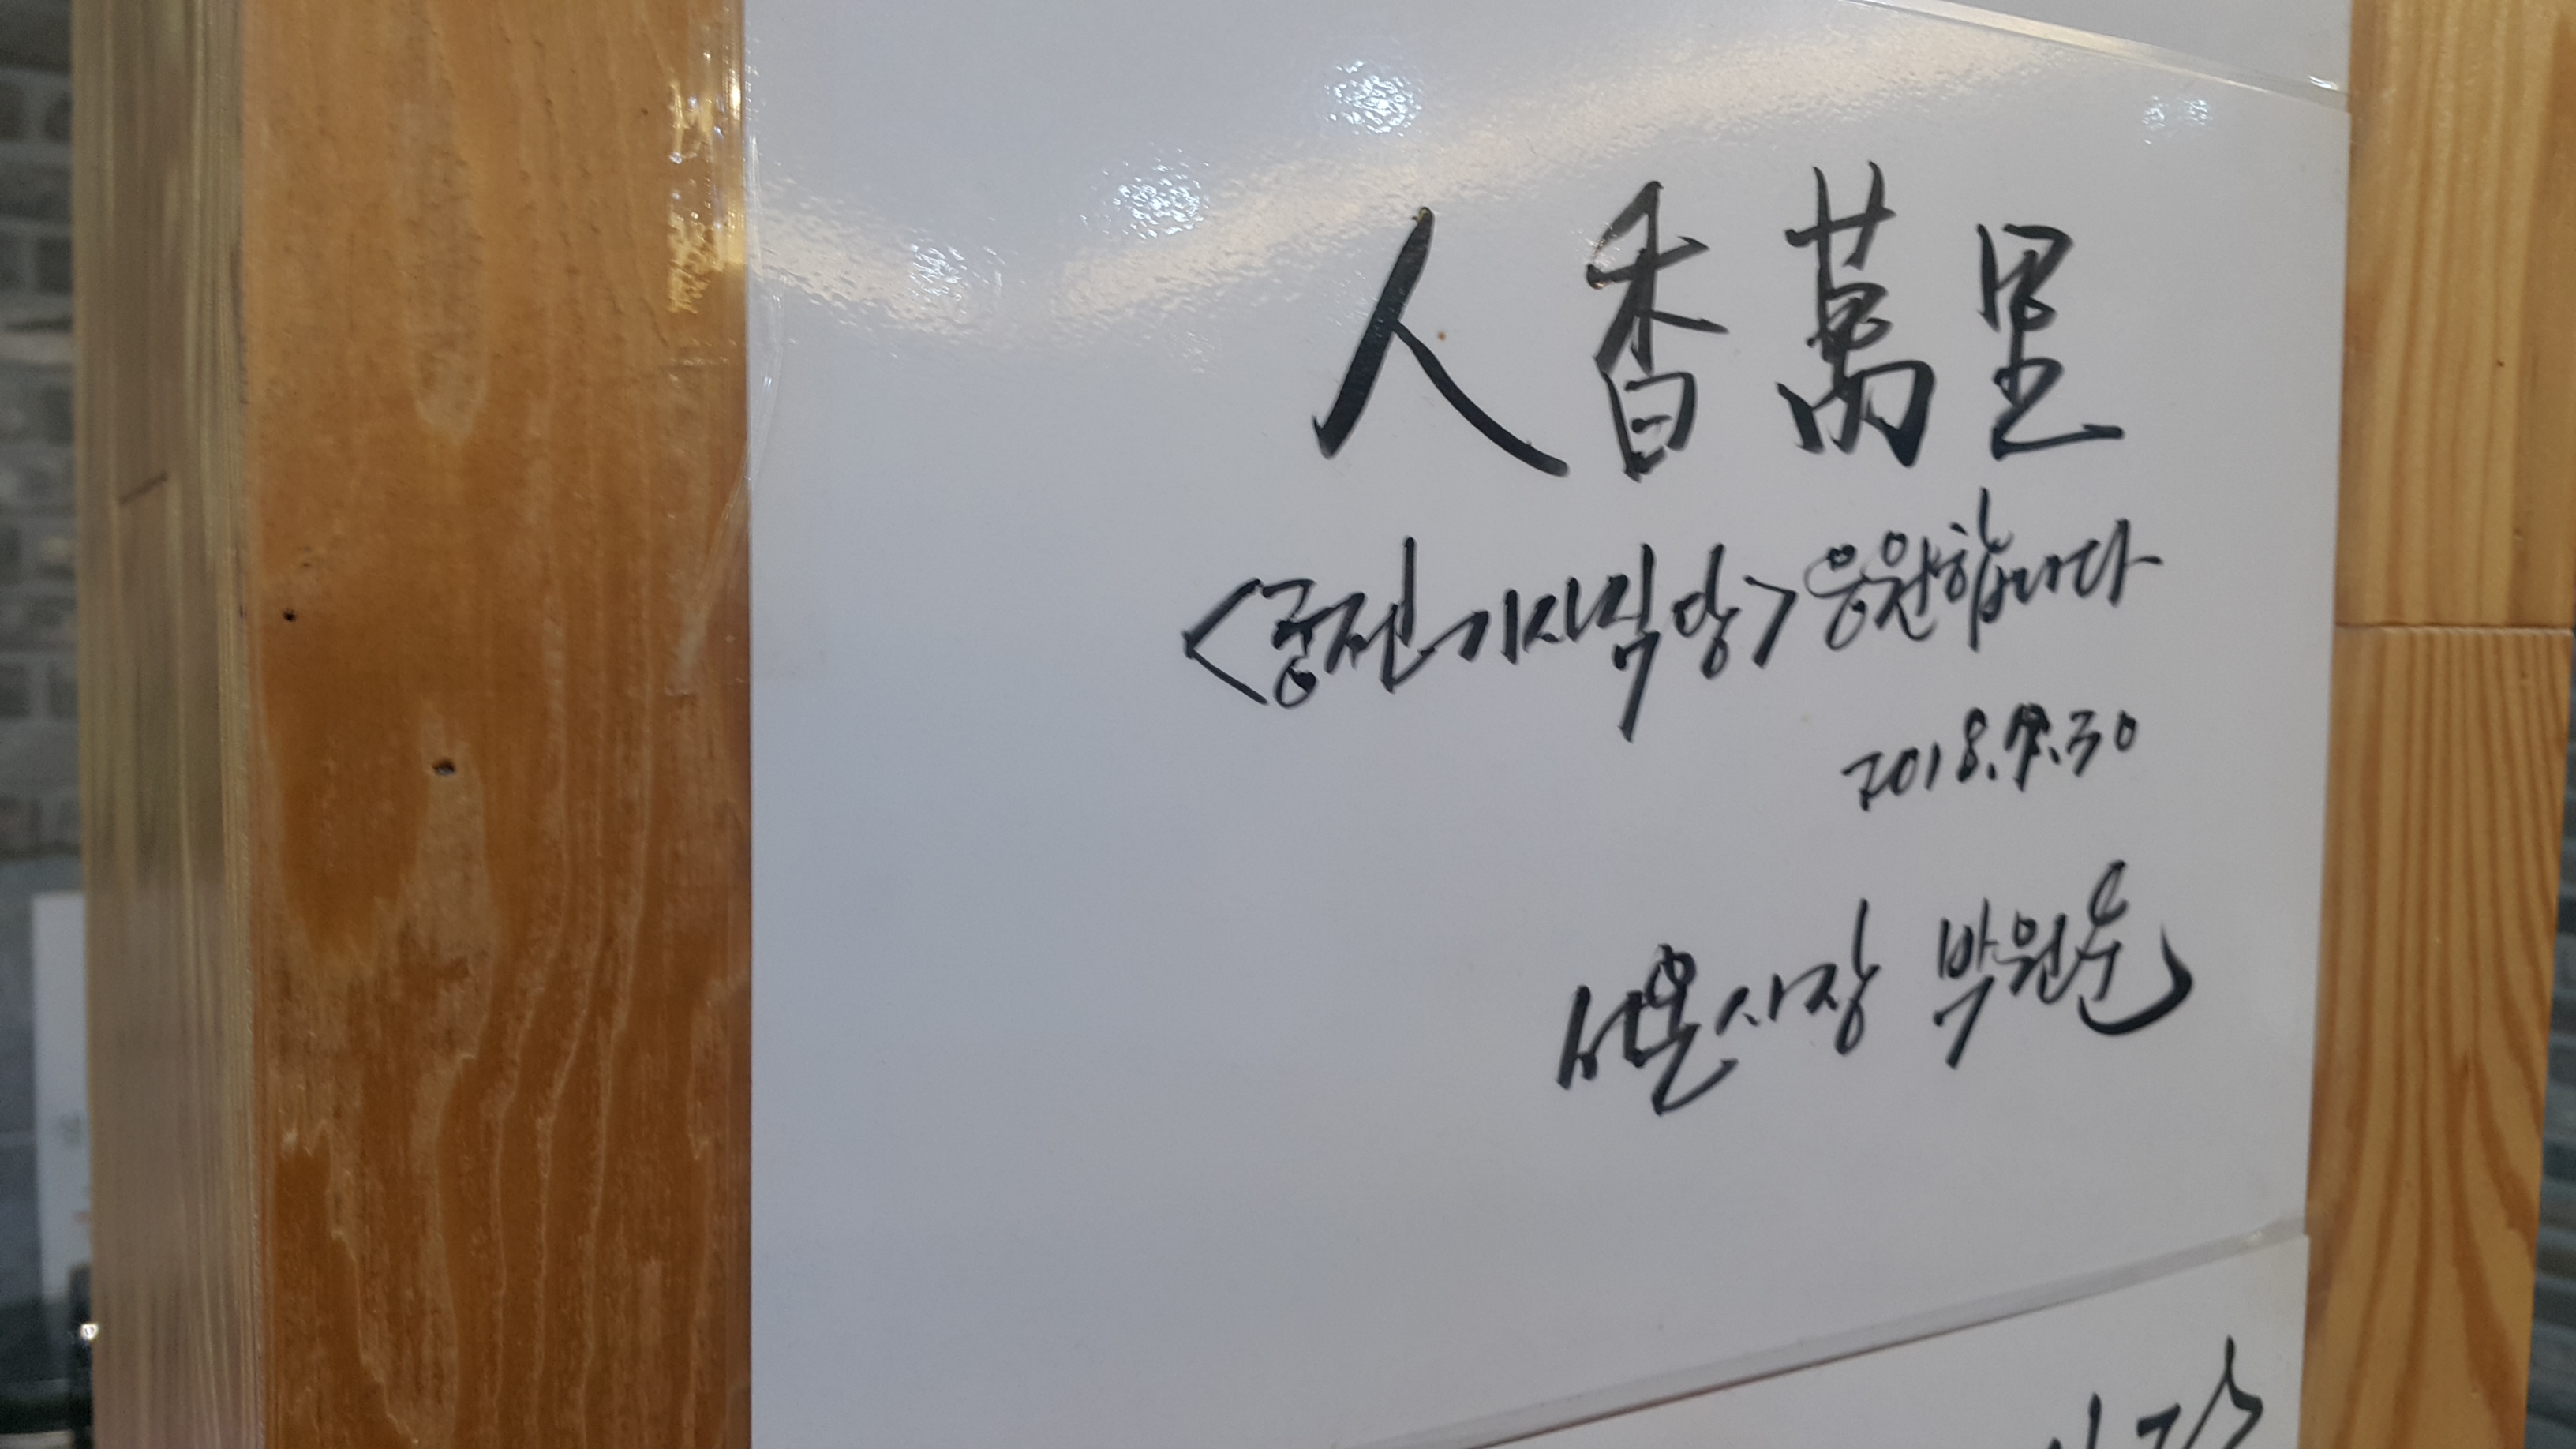 人香萬里
<공전기사식당> 응원합니다
2018.7.30
서울시장 박원순